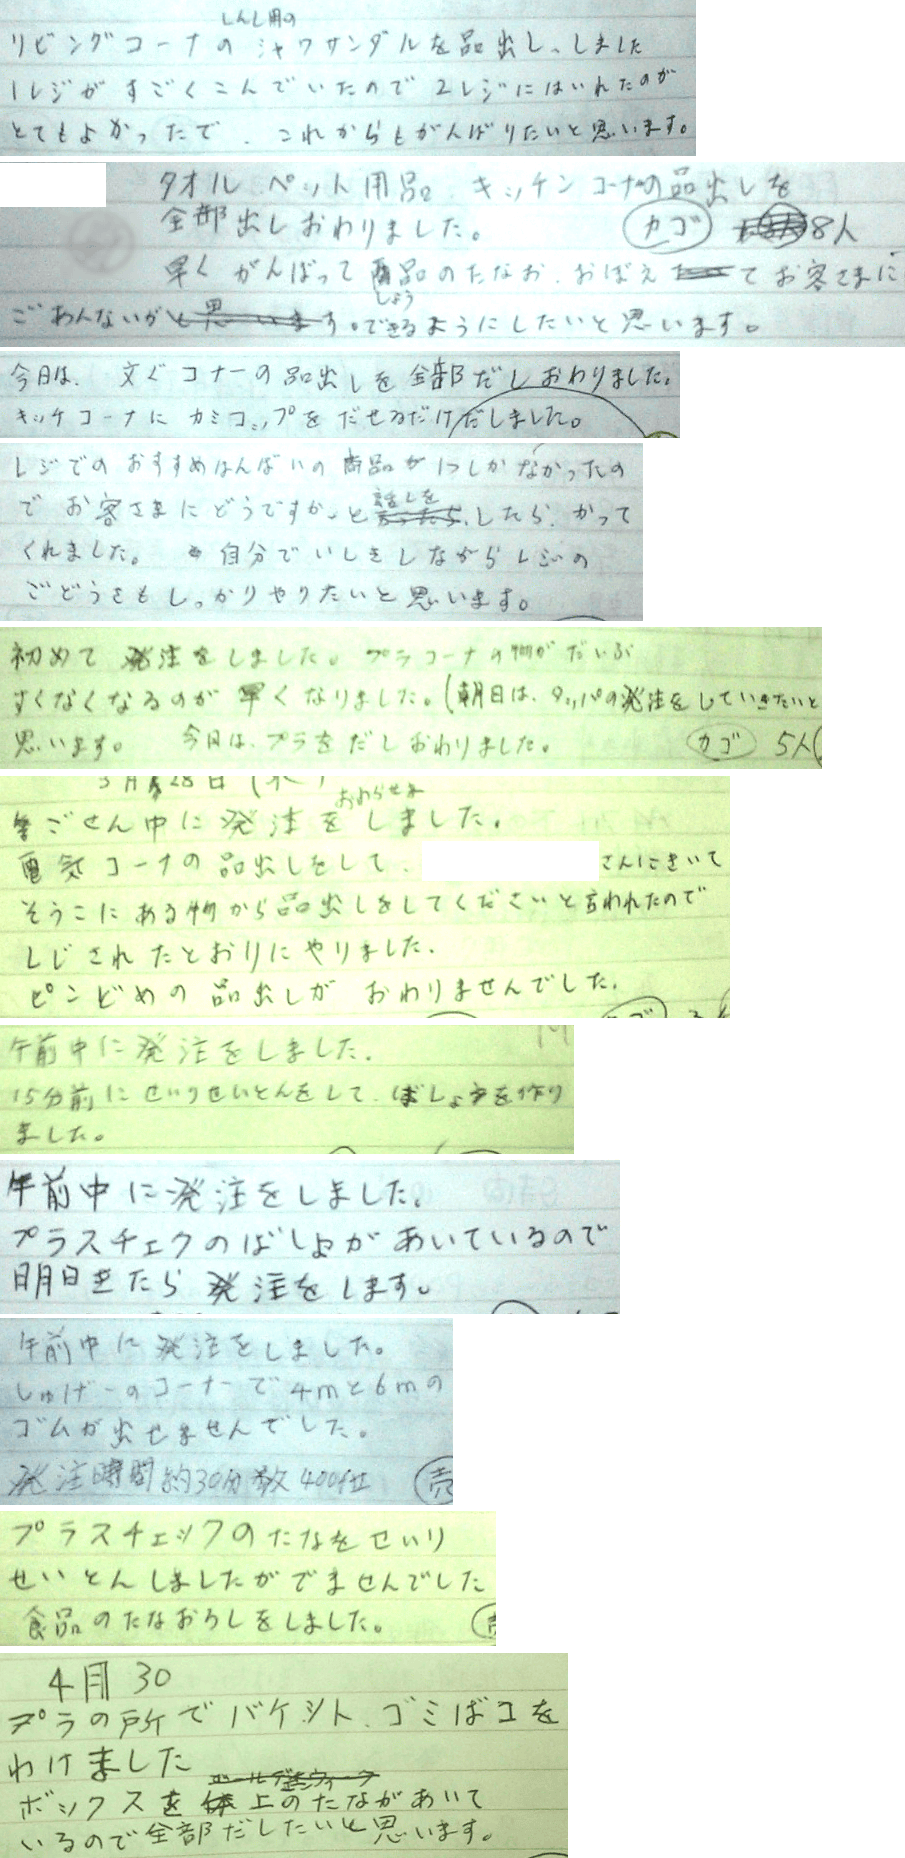 しんし用の
リビングコーナの シャワサンダルを品出し、しました
1レジが すごくこんでいたので 2レジにはいれたのが
とてもよかったで、これからもがんばりたいと思います。
タオル ペット用品、キッチン コーナの品出しを
全部 出しおわりました。 カゴ 8人
早く がんばって 商品のたなお、おぼえ てお客さまに
しょう
ごあんないがと思います。できるようにしたいと思います。
今日は、文ぐコナーの品出しを全部だしおわりました。
キッチコーナにカミコップをだせるだけだしました。
レジでの おすすめはんばいの商品が1つしかなかったの
で お客さまにどうですか、と 話しを したら、かって
くれました。 自分でいしきしながらレジの
ごどうさもしっかりやりたいと思います。
初めて 発注をしました。プラコーナの物がだいぶ
すくなくなるのが早くなりました。(朝日は、タッパの発注をしていきたいと
思います。 今日は、プラをだしおわりました。 カゴ 5人
3月28日(木)
おわらせま
ごせん中に発注をしました。
電気コーナの品出しをして、 さんにきいて
そうこにある物から品出しをしてくださいと言われたので
しじされたとおりにやりました。
ピンどめの品出しが おわりませんでした。
午前中に発注をしました。
15分前にせいりせいとんをして、ばしょを作り
ました。
午前中に発注をしました。
プラスチェクのばしょがあいているので
明日きたら発注をします。
午前中に発注をしました。
しゅげーのコーナーで4mと6mの
ゴムが出せませんでした。
発注時間約30分数400位
プラスチェックのたなをせいり
せいとんしましたがでませんでした
食品のたなおろしをしました。
4月30
プラの所でバケット、ゴミばコを
わけました
ゴールデンウィーク
ボックスを 上のたながあいて
いるので全部だしたいと思います。